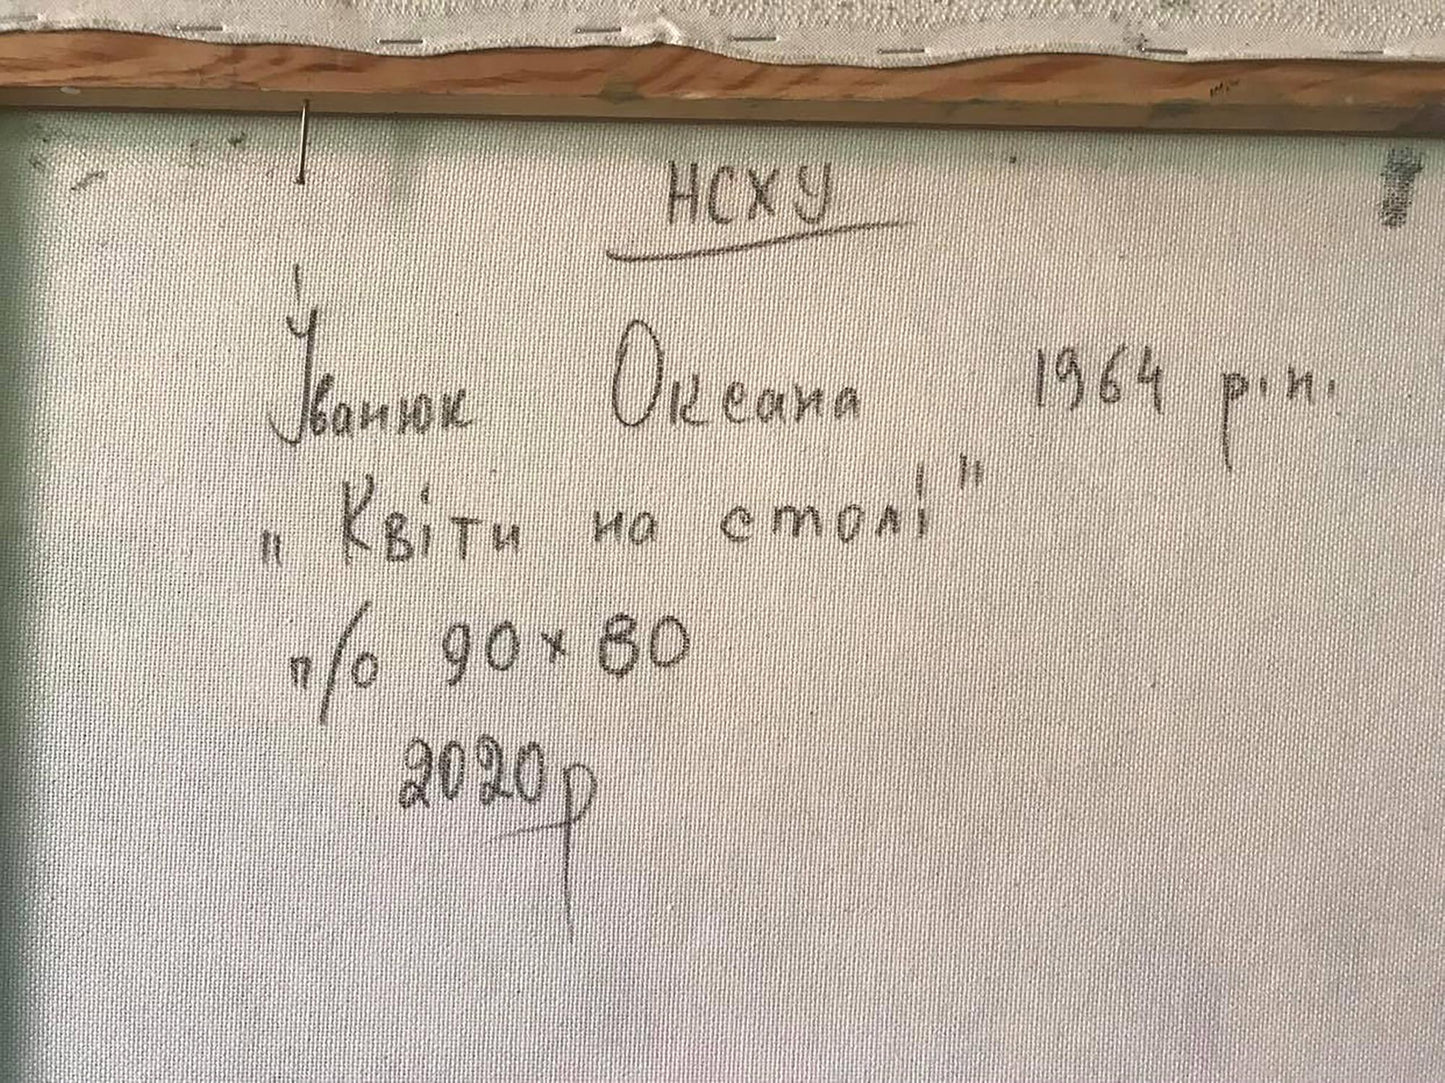 НСХУ
Іванюк Оксана 1964 р.н.
„Квіти на столі"
п/о 90х80
2020р